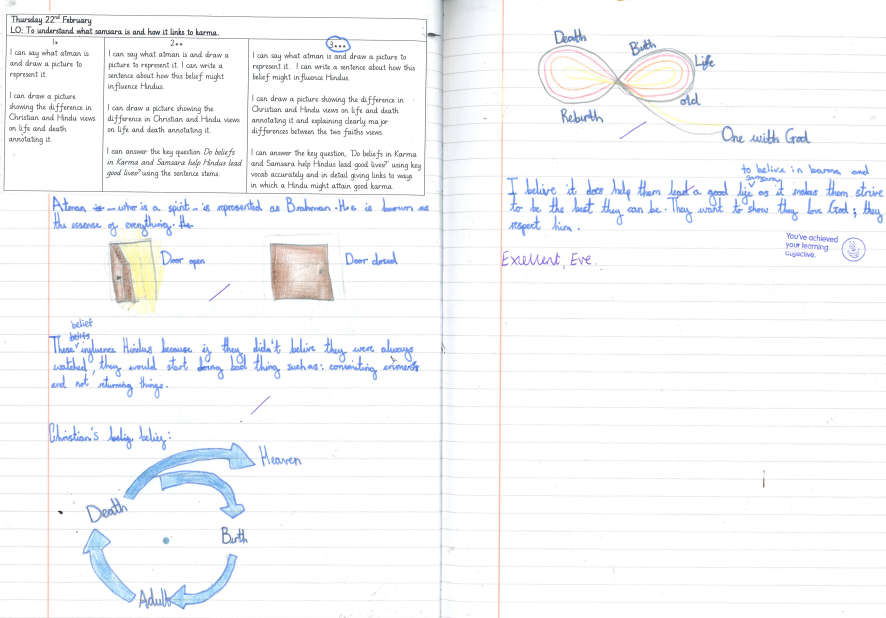 Thursday 22nd February
LO: To understand what samsara is and how it links to karma.
1*
I can say what atman is
and draw a picture to
represent it.
I can draw a picture
showing the difference in
Christian and Hindu views
on life and death
annotating it.
2**
I can say what atman is and draw a
picture to represent it. I can write a
sentence about how this belief might
influence Hindus.
I can draw a picture showing the
difference in Christian and Hindu views
on life and death annotating it.
I can answer the key question Do beliefs
in Karma and Samsara help Hindus lead
good lives? using the sentence stems.
3***
I can say what atman is and draw a picture to
represent it. I can write a sentence about how this
belief might influence Hindus.
I can draw a picture showing the difference in
Christian and Hindu views on life and death
annotating it and explaining clearly major
differences between the two faiths views.
I can answer the key question, 'Do beliefs in Karma
and Samsara help Hindus lead good lives?' using key
vocab accurately and in detail giving links to ways
in which a Hindu might attain good karma.
Atman is - who is a spirit - is represented as Brahman. He is known as
the essence of everything. He
Door open
Door closed
belief
belifs
These influence Hindus because if they didn't belive they were always
watched, they would start doing bad thing such as: commiting crimes
and not returning things.
Christian's belif belief:
Heaven
Death
Birth
Adult
Death
Birth
Life
old
Rebirth
One with God
to belive in karma and
samsara
I belive it does help them lead a good life as it makes them strive
to be the best they can be. They want to show they love God; they
respect him.
You've achieved
your learning
objective.
Excellent, Eve.